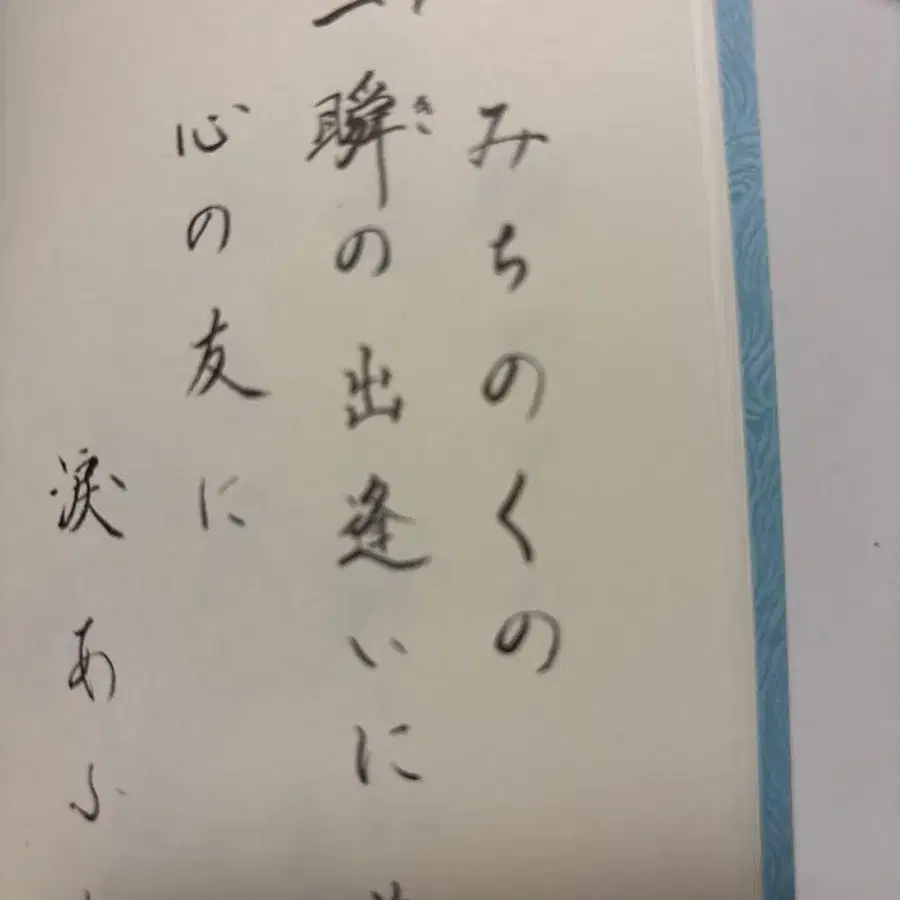 みちのくの
一瞬の出逢いに
心の友に
涙あふ